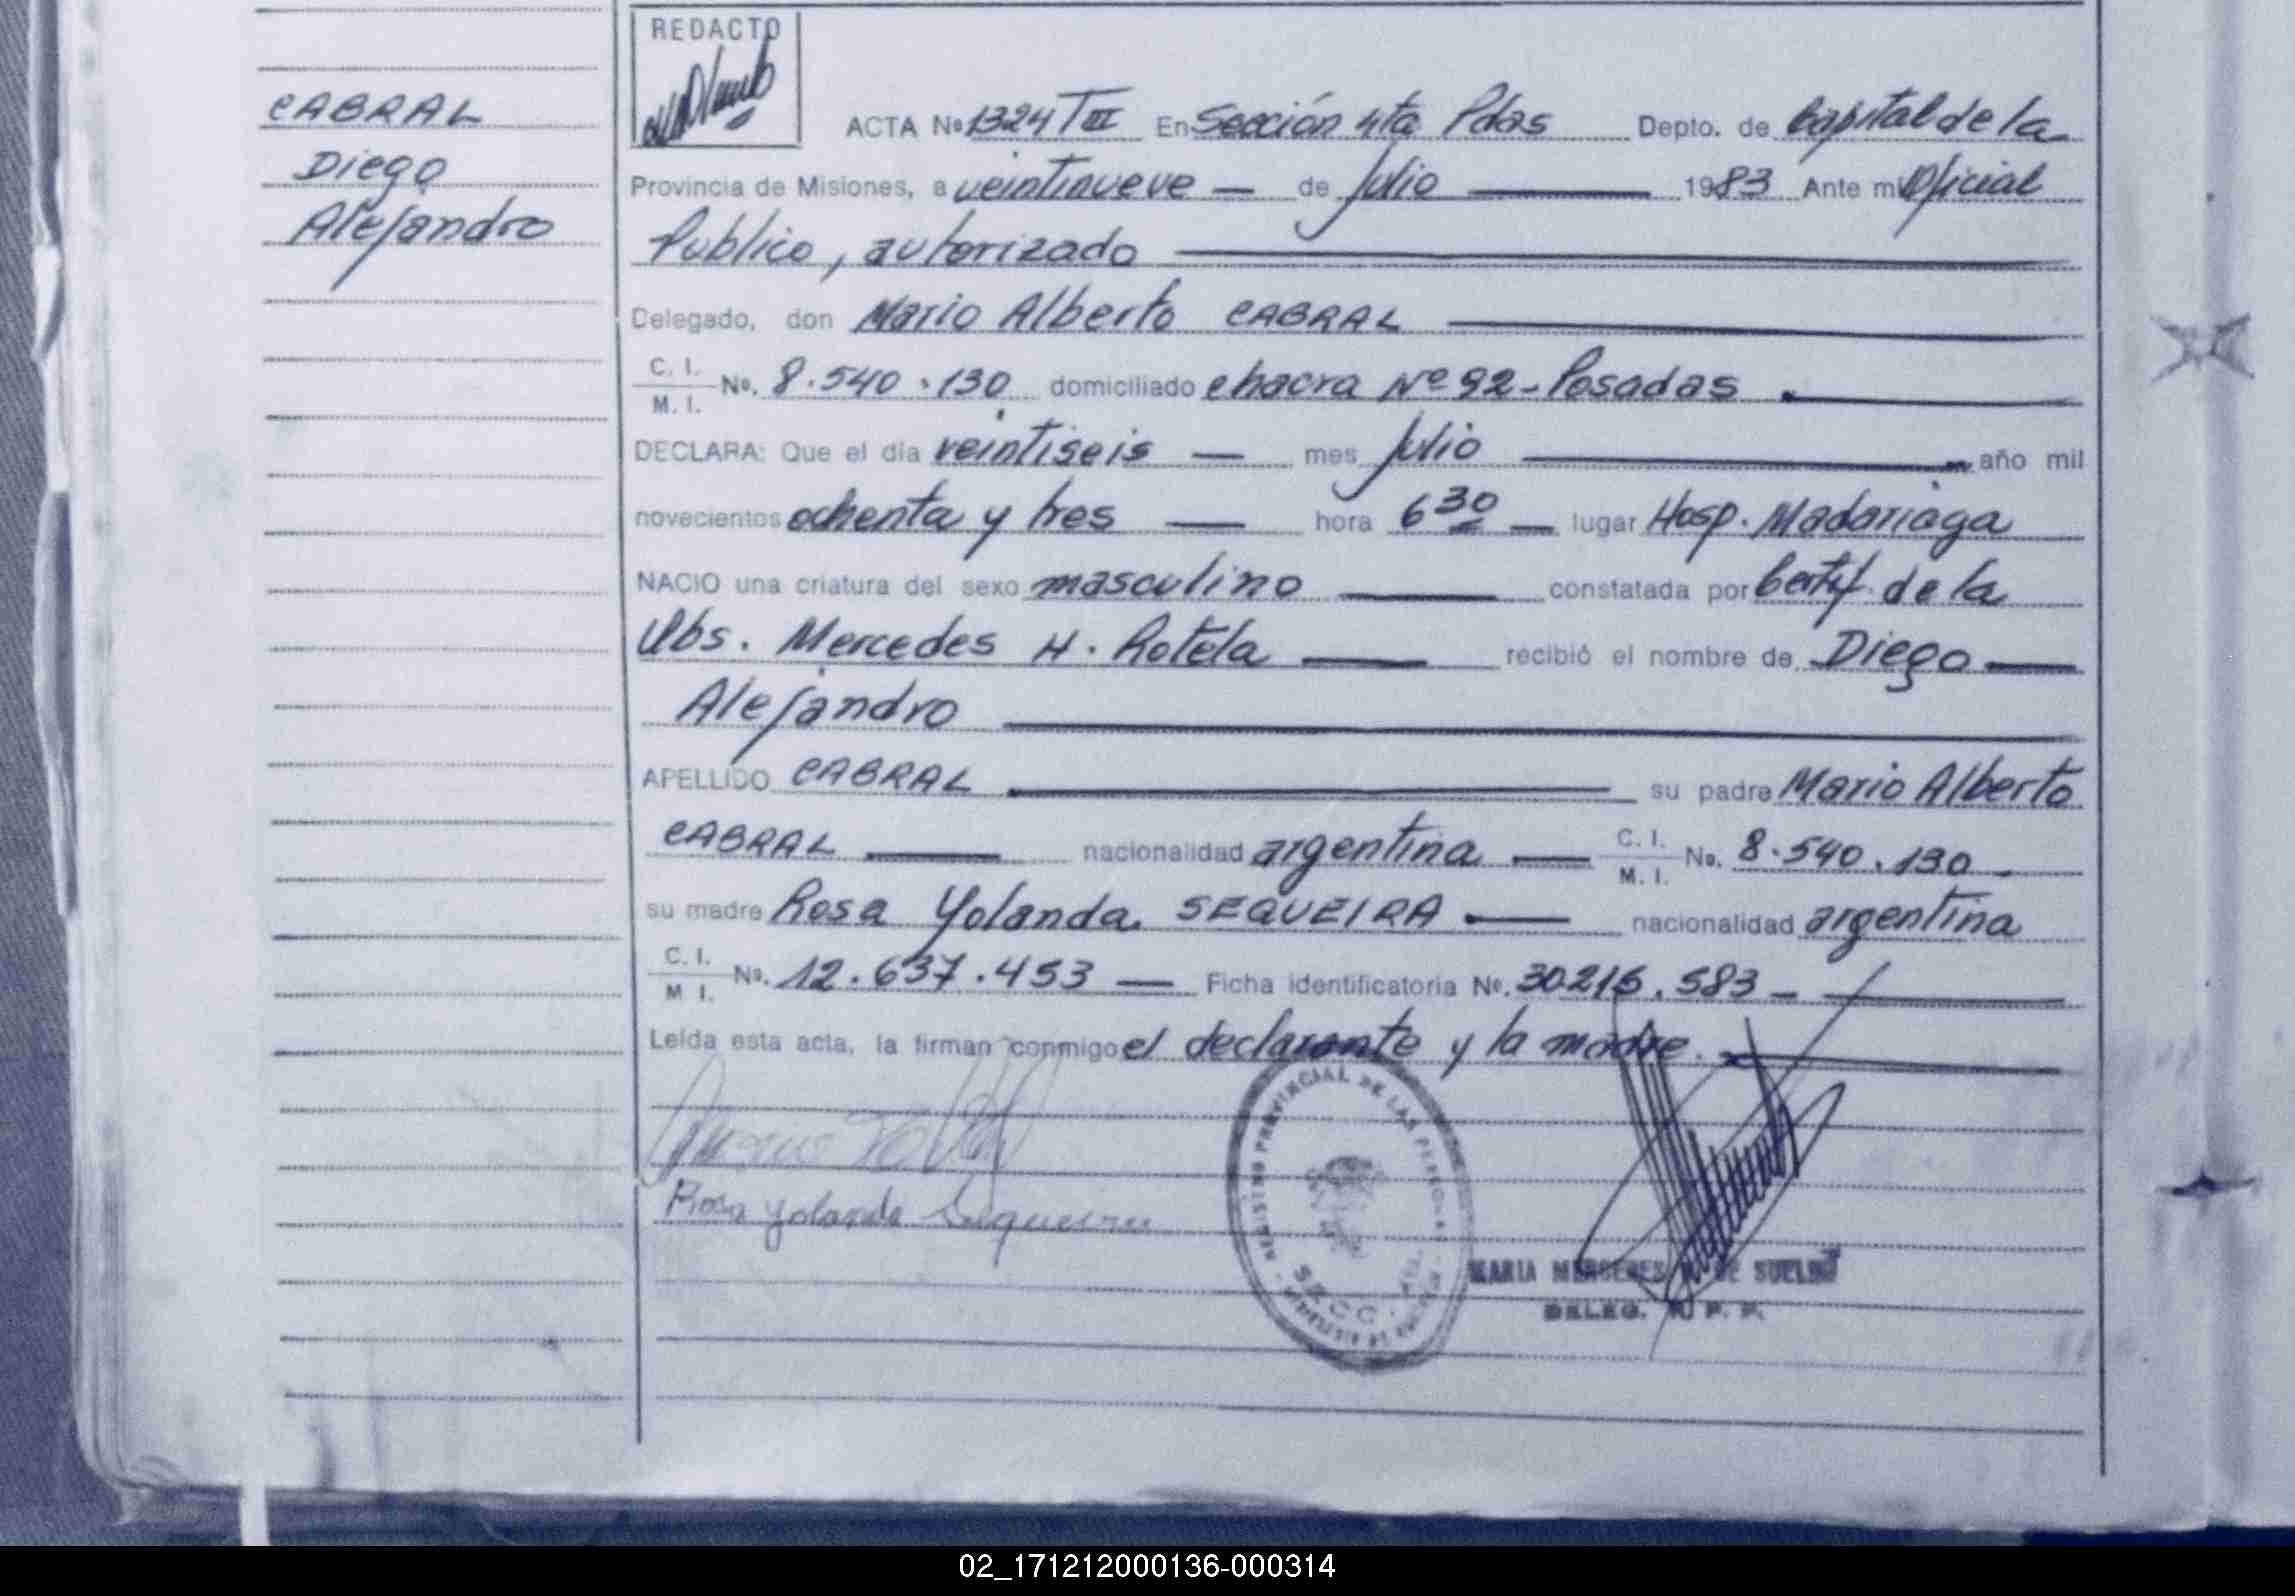 REDACTO
CABRAL
Diego
Alejandro
ACTA Nº 1324 TIII En Sección 4ta Pdas Depto. de Capital de la
Provincia de Misiones, a veintinueve — de Julio — 1983 Ante mi Oficial
Publico, autorizado
Delegado, don Mario Alberto CABRAL
C. I.
M. I. Nº. 8.540.130 domiciliado chacra Nº 92-Posadas
DECLARA: Que el día veintiseis — mes Julio — año mil
novecientos ochenta y tres — hora 6 30 — lugar Hosp. Madariaga
NACIO una criatura del sexo masculino — constatada por Certif. de la
Obs. Mercedes H. Rotela — recibió el nombre de Diego —
Alejandro
APELLIDO CABRAL — su padre Mario Alberto
CABRAL — nacionalidad argentina — C. I.
M. I. Nº. 8.540.130
su madre Rosa Yolanda SEQUEIRA — nacionalidad argentina
C. I.
M I. Nº. 12.637.453 — Ficha identificatoria Nº. 30.215.583 —
Leída esta acta, la firman conmigo el declarante y la madre.
Rosa Yolanda Sequeira
REGISTRO PROVINCIAL DE LAS PERSONAS
MARIA MERCEDES DE SUELDO
DELEG. R. P. P.
02_171212000136-000314